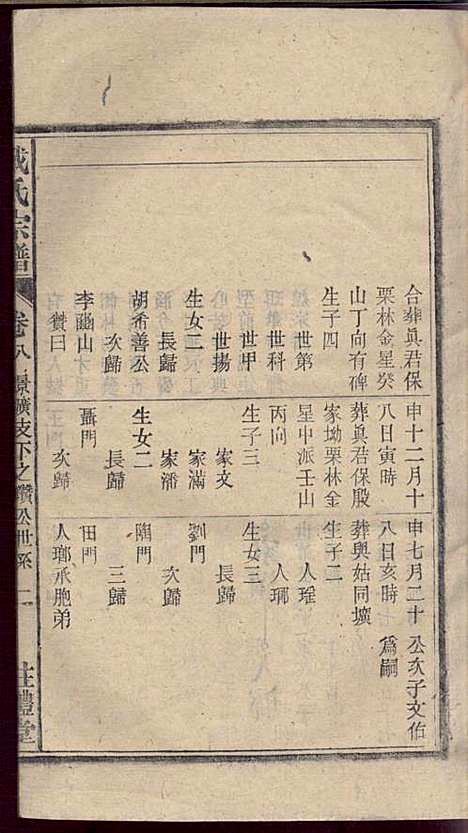 合葬眞君保
栗林金星癸
山丁向有碑
生子四
世第
世科
世甲
世揚
生女三
長歸
胡希善公
次歸
李
山
贊曰
申十二月十
八日寅時
葬眞君保殷
家坳栗林金
星中派壬山
丙向
生子三
家文
家滿
家潘
生女二
長歸
聶門
次歸
申七月二十
八日亥時
葬與姑同壙
生子二
人瑤
人瑯
生女三
長歸
劉門
次歸
陶門
三歸
田門
人瑯承胞弟
公次子文佑
爲嗣
氏宗譜
卷八
景曠支下之鑽公世系
二
禮堂